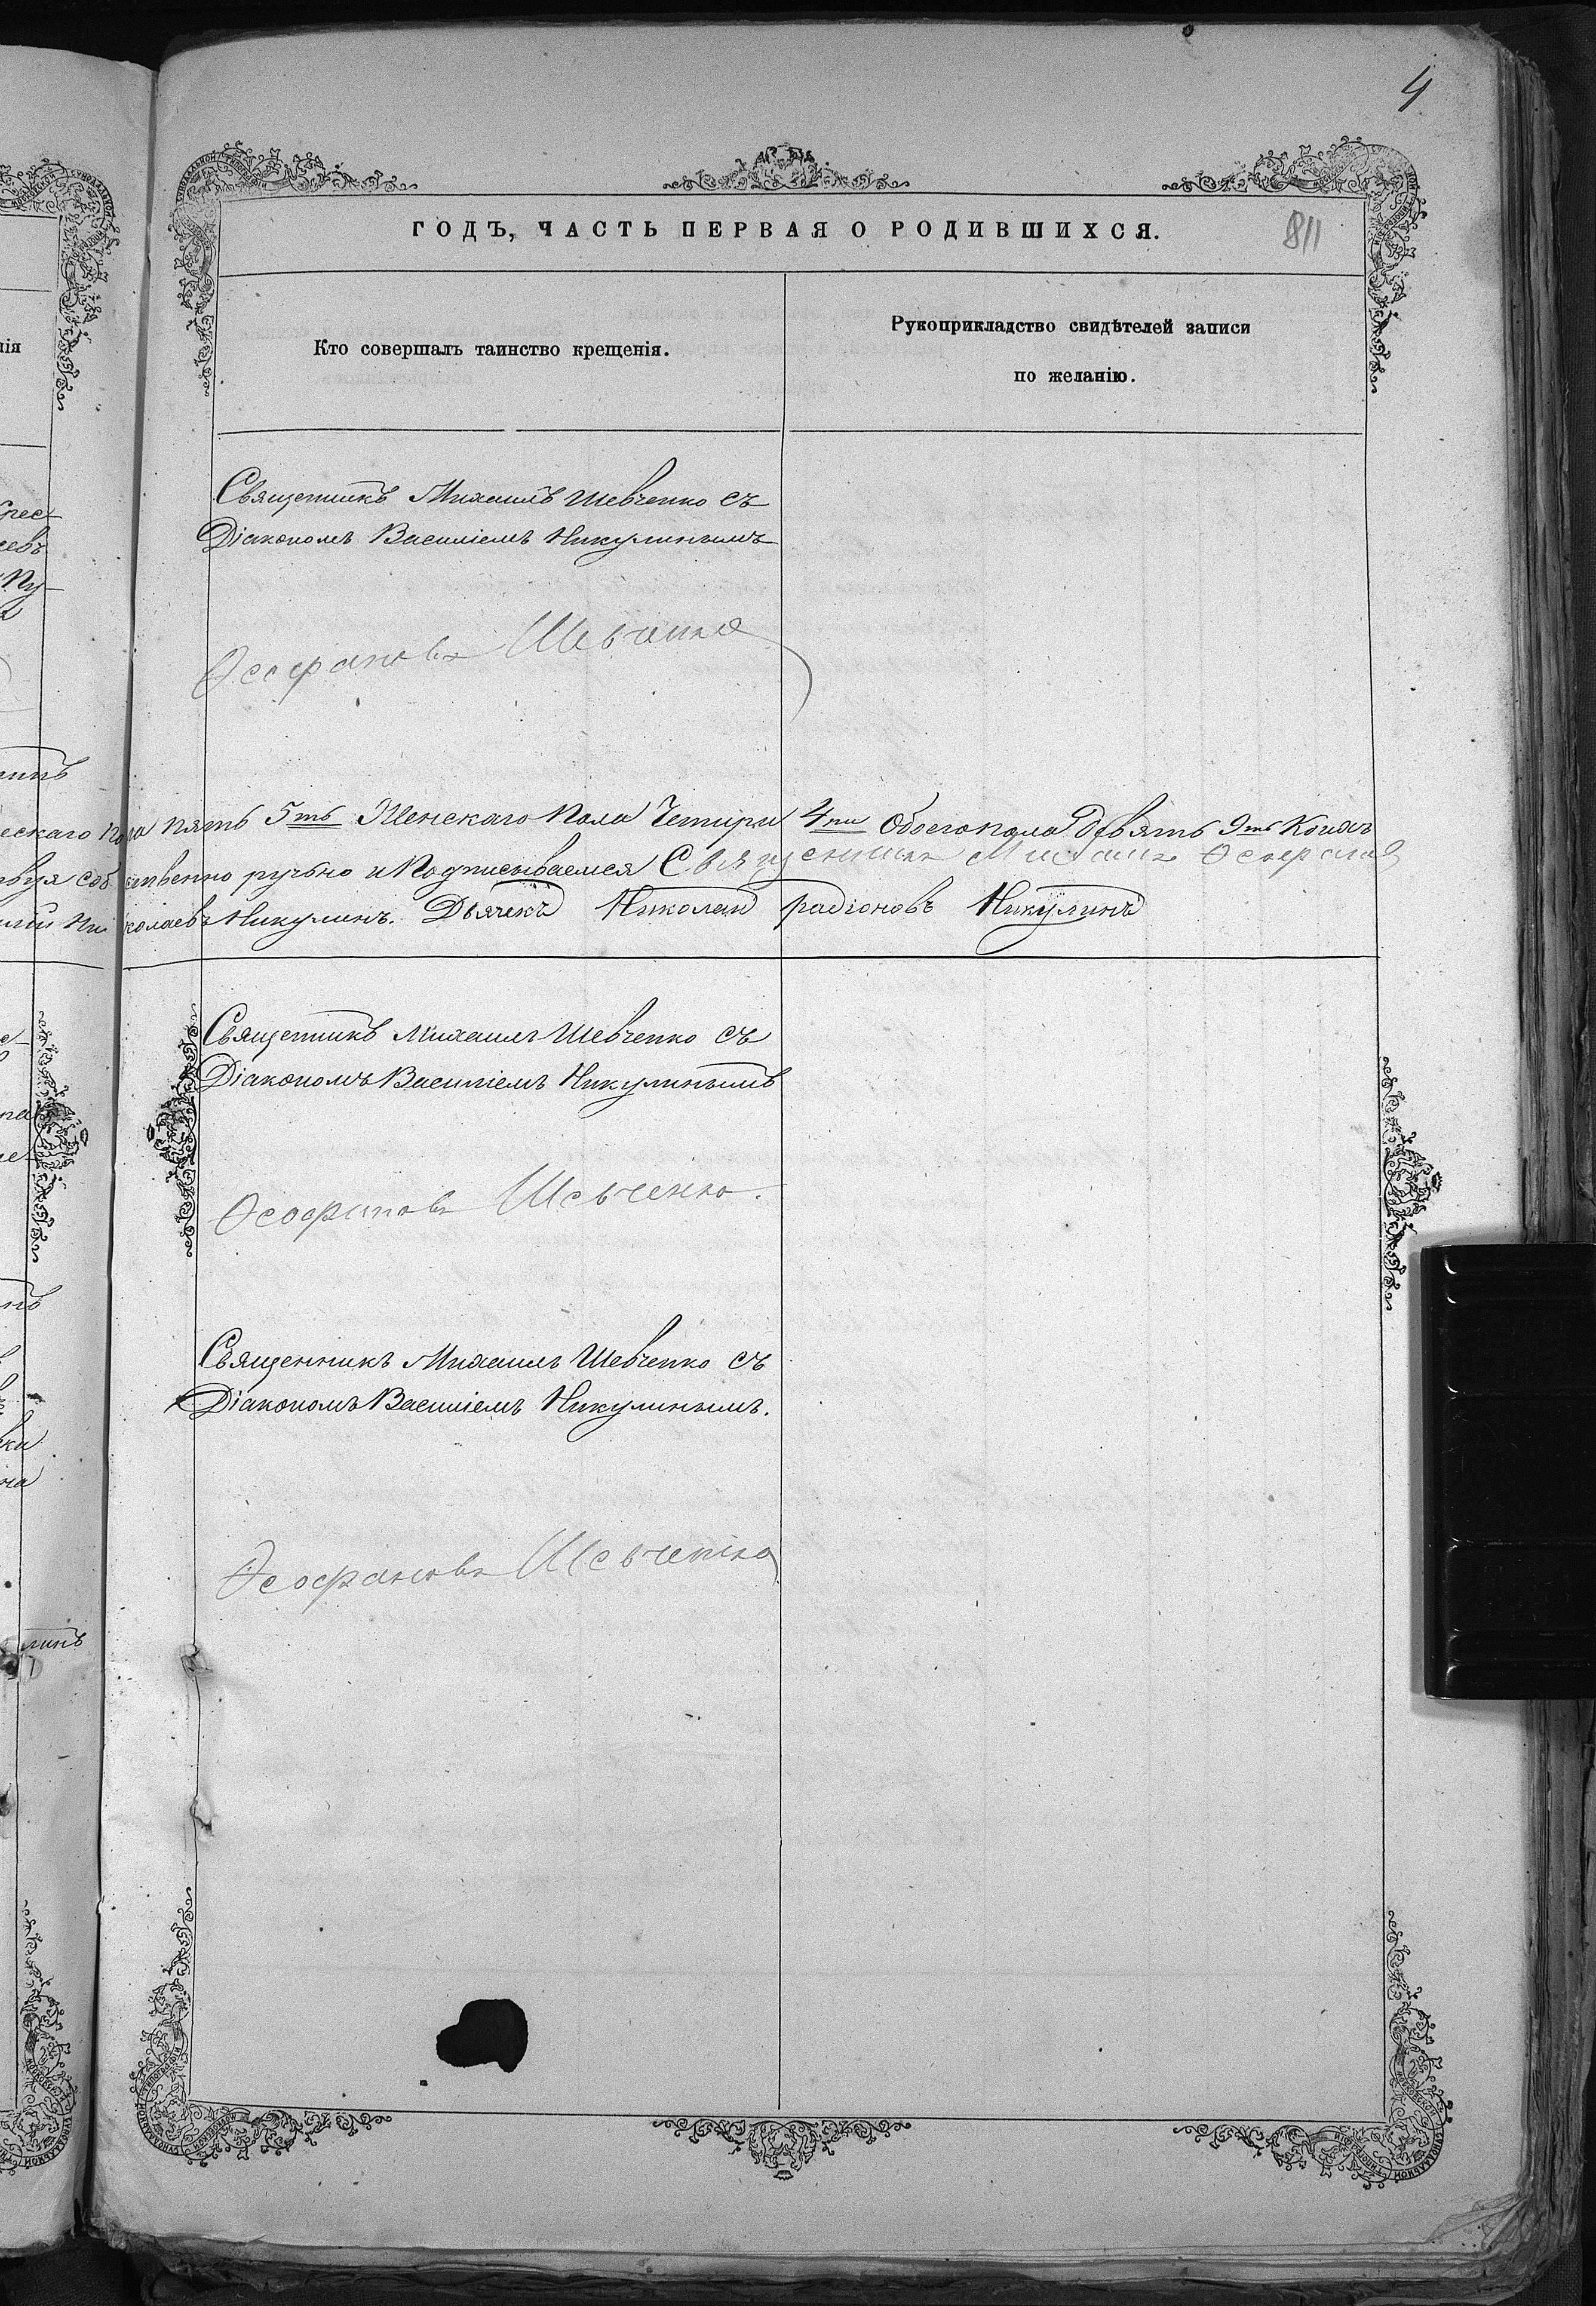 4
ГОДЪ, ЧАСТЬ ПЕРВАЯ О РОДИВШИХСЯ.
811
Кто совершалъ таинство крещенія.
Рукоприкладство свидѣтелей записи
по желанію.
Священникъ Михаилъ Шевченко съ
Діакономъ Василіемъ Никулинымъ
Ѳеофановъ Шевченко
ескаго пола пять 5ть Женскаго пола Четыри 4ри Обоего пола Девять 9ть Коихъ
ственно ручно и Подписываемся Священникъ Михаилъ Ѳеофановъ
Николаевъ Никулинъ. Дьячекъ Николай радіоновъ Никулинъ
Священникъ Михаилъ Шевченко съ
Діакономъ Василіемъ Никулинымъ
Ѳеофановъ Шевченко.
Священникъ Михаилъ Шевченко съ
Діакономъ Василіемъ Никулинымъ.
Ѳеофановъ Шевченко